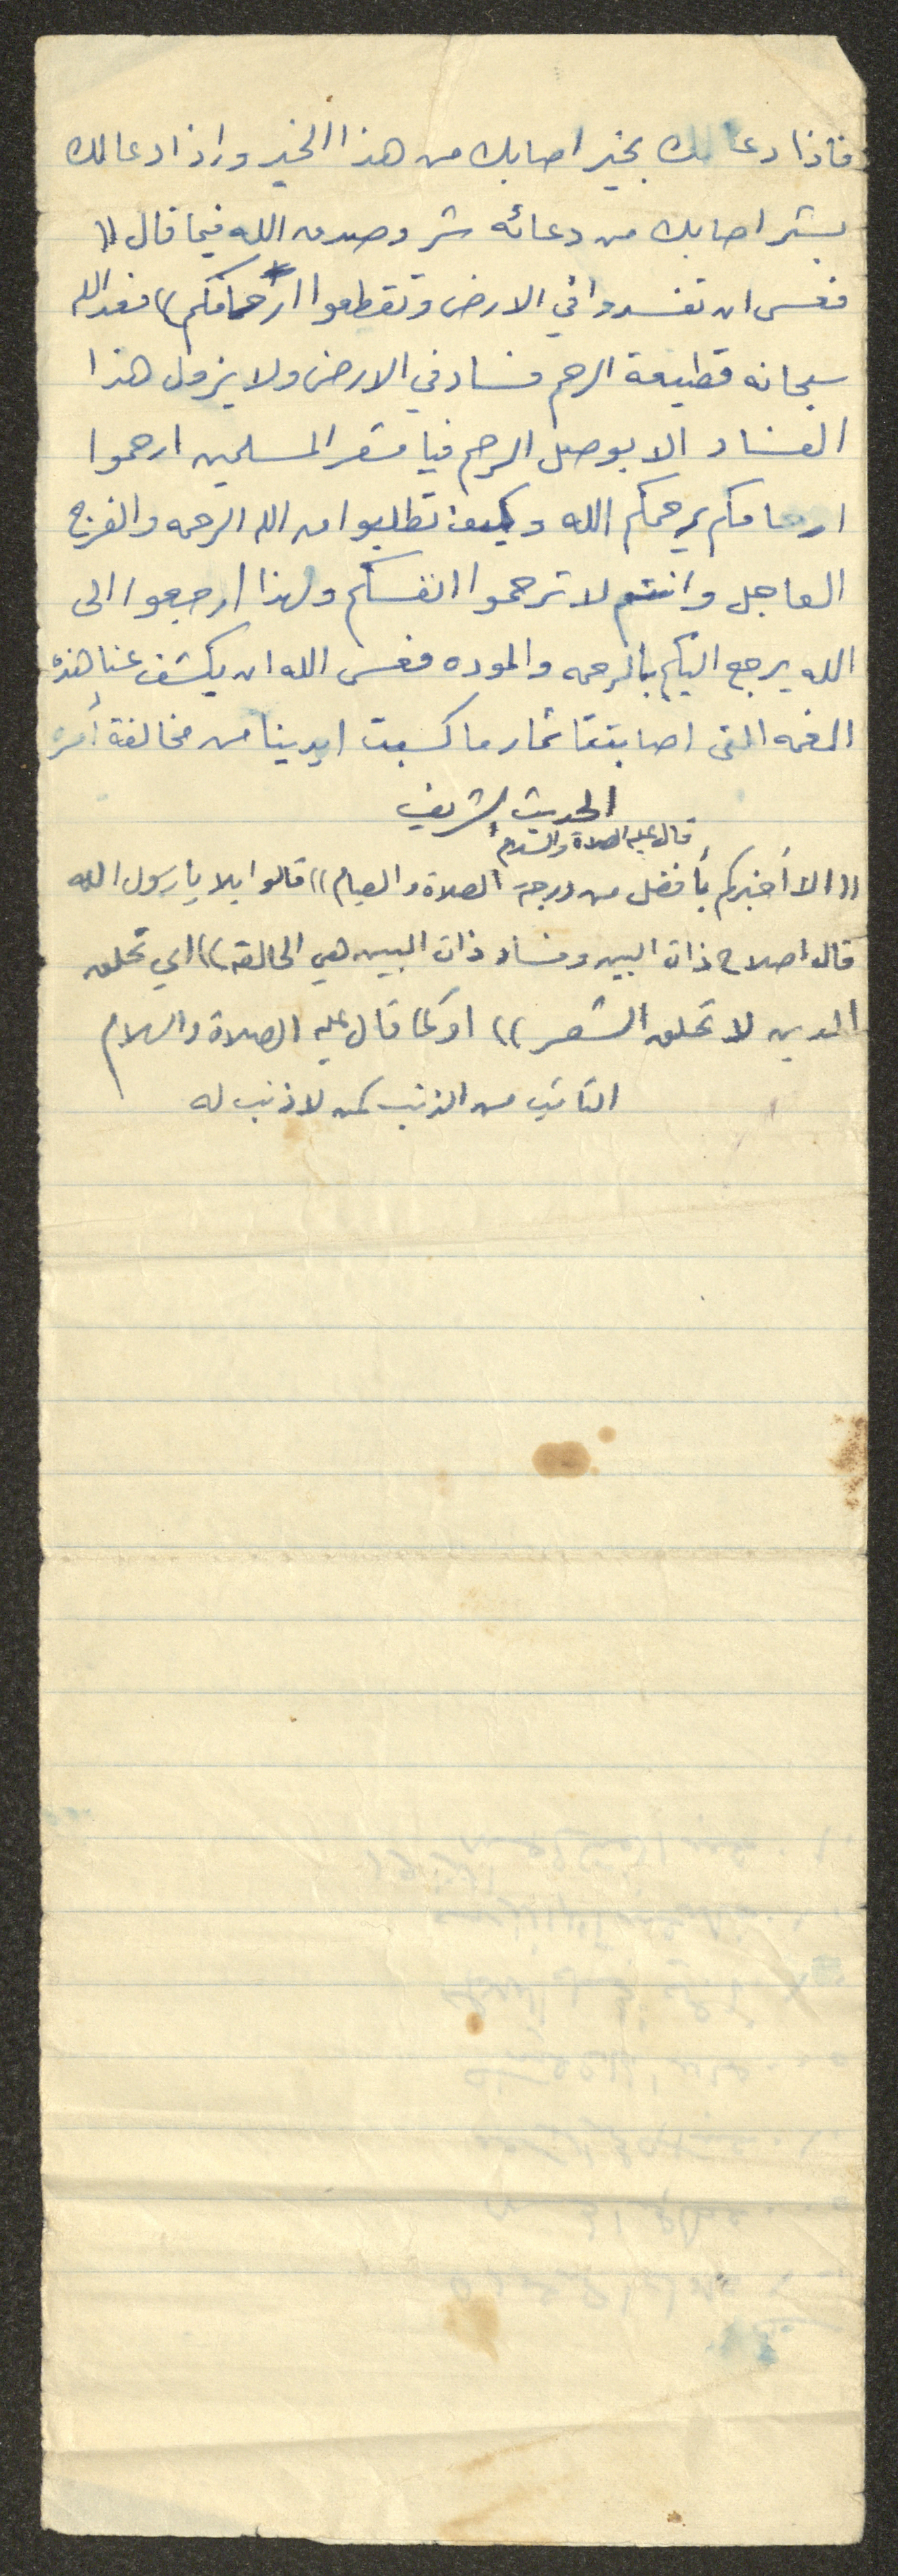 فاذا دعا لك بخير اصابك من هذا الخير واذا دعا لك
بشر اصابك من دعائه شر وصدق الله فيما قال ((
فعسى ان تفسدوا في الارض وتقطعوا ارحامكم)) فعد الله
سبحانه قطيعة الرحم فساد في الارض ولا يزول هذا
الفساد الا بوصل الرحم فيا معشر المسلمين ارحموا
ارحامكم يرحمكم الله وكيف تطلبوا من الله الرحمه والفرج
العاجل وانتم لا ترحموا انفسكم ولهذا ارجعوا الى
الله يرجع اليكم بالرحمه والموده فعسى الله ان يكشف عنا هذه
الغمه التى اصابتنا ثمار ما كسبت ايدينا من مخالفة أمره
الحديث الشريف
قال عليه الصلاة والسلام
((الا أخبركم بأفضل من درجة الصلاة والصيام)) قالوا بلا يا رسول الله
قال اصلاح ذات البين وفساد ذات البين هي الحالقه)) اي تحلق
الدين لا تحلق الشعر)) او كما قال عليه الصلاة والسلام
التائب من الذنب كمن لا ذنب له